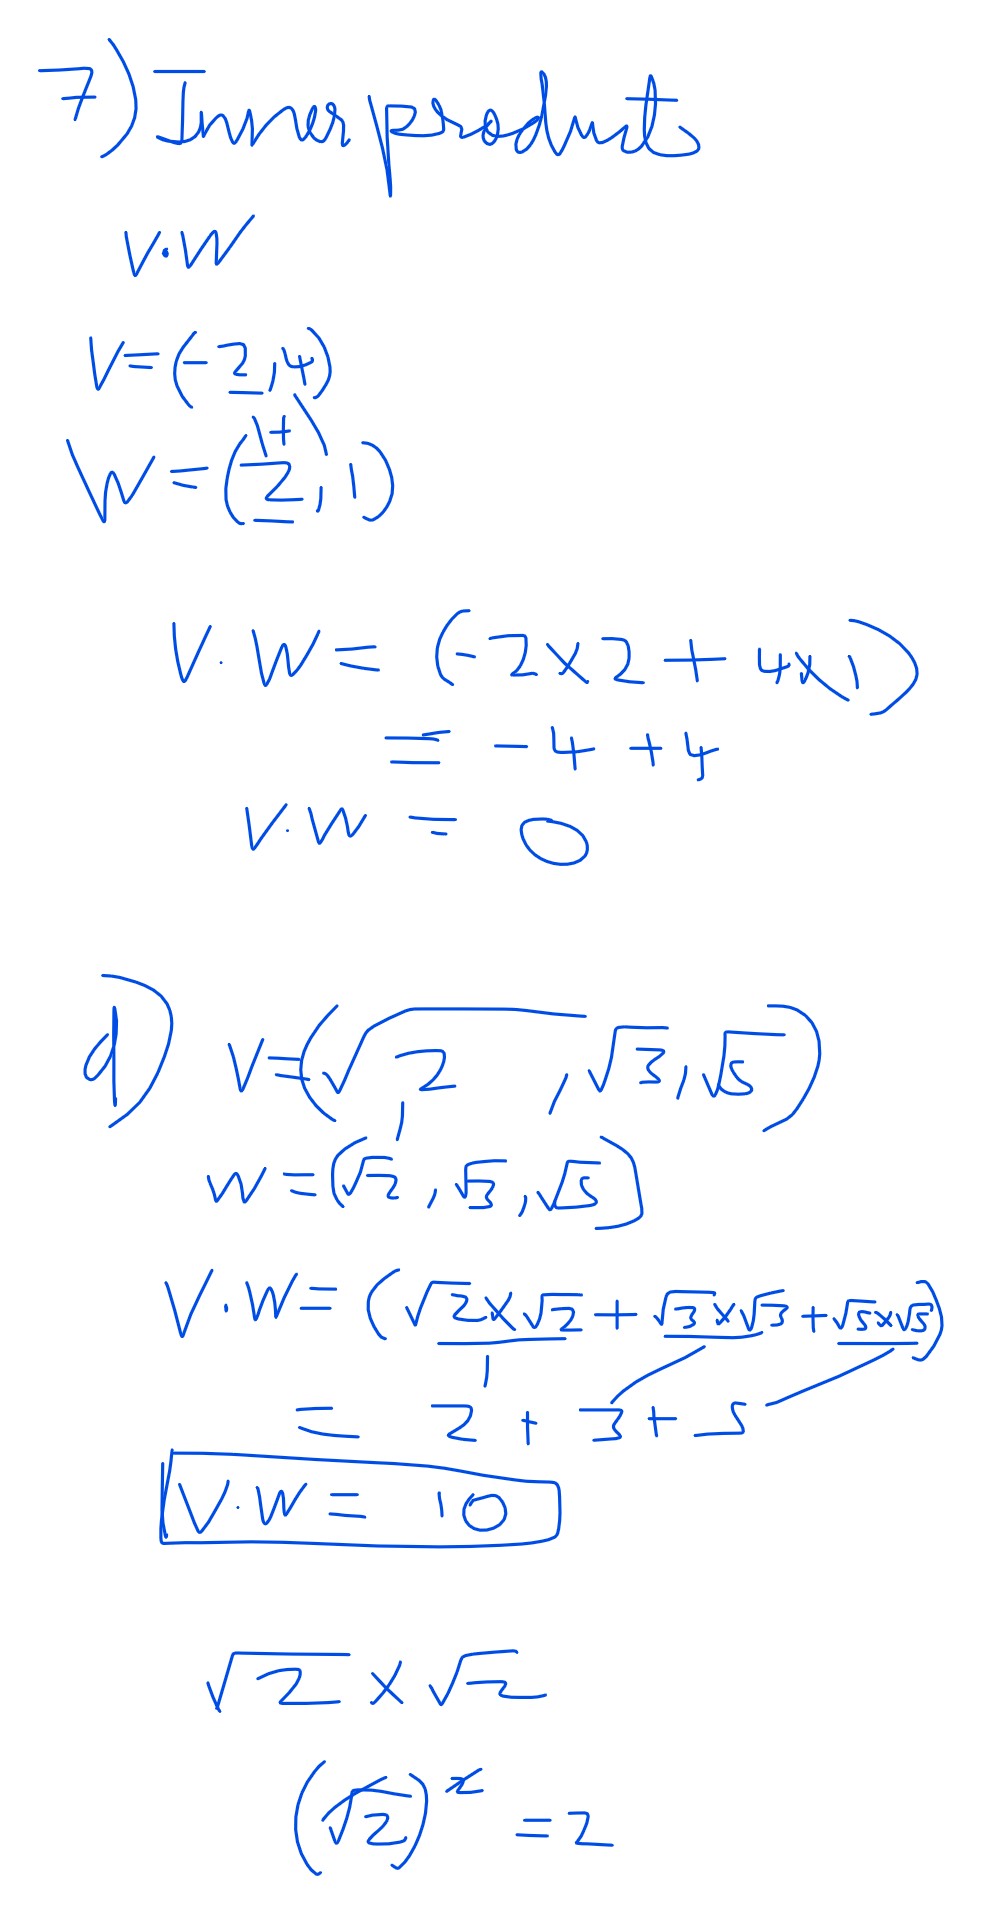 7) Inner product
V·W
V=(-2,4)
+
W=(2,1)
V.W= (-2x2 + 4x1)
= -4 +4
V.W = 0
d) V=(√2, √3,√5)
W=(√2,√3,√5)
V.W= (√2x√2+√3x√3+√5x√5)
= 2+3+5
V.W= 10
√2 x √2
(√2)² =2